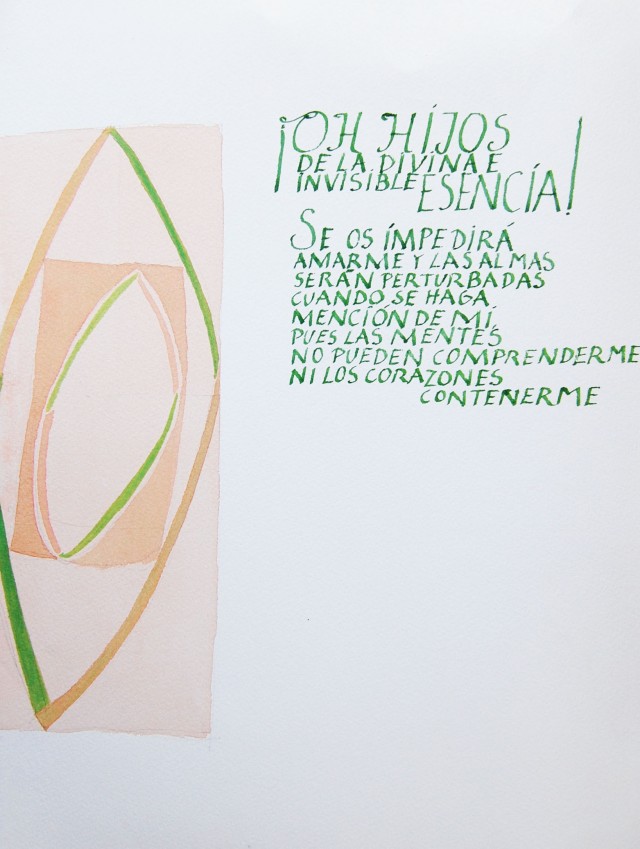 ¡OH HÍJOS
DE LA DIVINA E
INVISIBLE ESENCÍA!
SE OS ÍMPEDIRÁ
AMARME Y LAS ALMAS
SERÁN PERTURBADAS
CUANDO SE HAGA
MENCIÓN DE MÍ,
PUES LAS MENTES
NO PUEDEN COMPRENDERME
NI LOS CORAZONES
CONTENERME